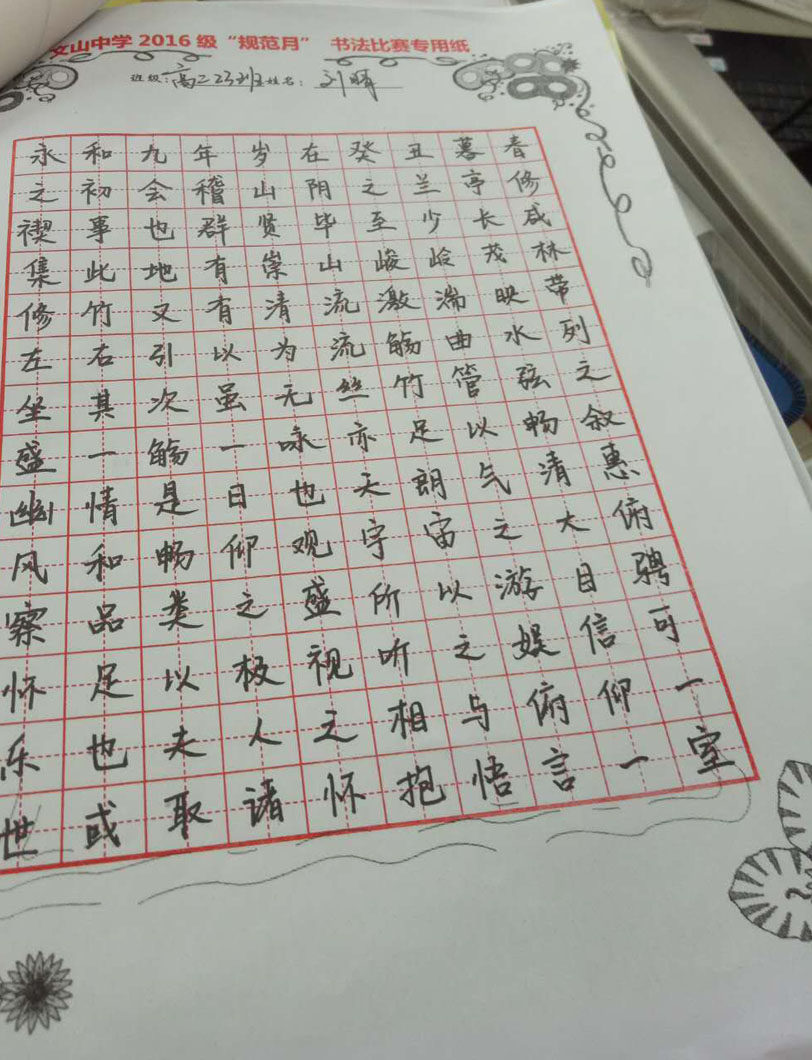 文山中学 2016 级 “规范月” 书法比赛专用纸
班级: 高二23班 姓名: 刘晴
永和九年岁在癸丑暮春
之初会稽山阴之兰亭修
禊事也群贤毕至少长咸
集此地有崇山峻岭茂林
修竹又有清流激湍映带
左右引以为流觞曲水列
坐其次虽无丝竹管弦之
盛一觞一咏亦足以畅叙
幽情是日也天朗气清惠
风和畅仰观宇宙之大俯
察品类之盛所以游目骋
怀足以极视听之娱信可
乐也夫人之相与俯仰一
世或取诸怀抱悟言一室